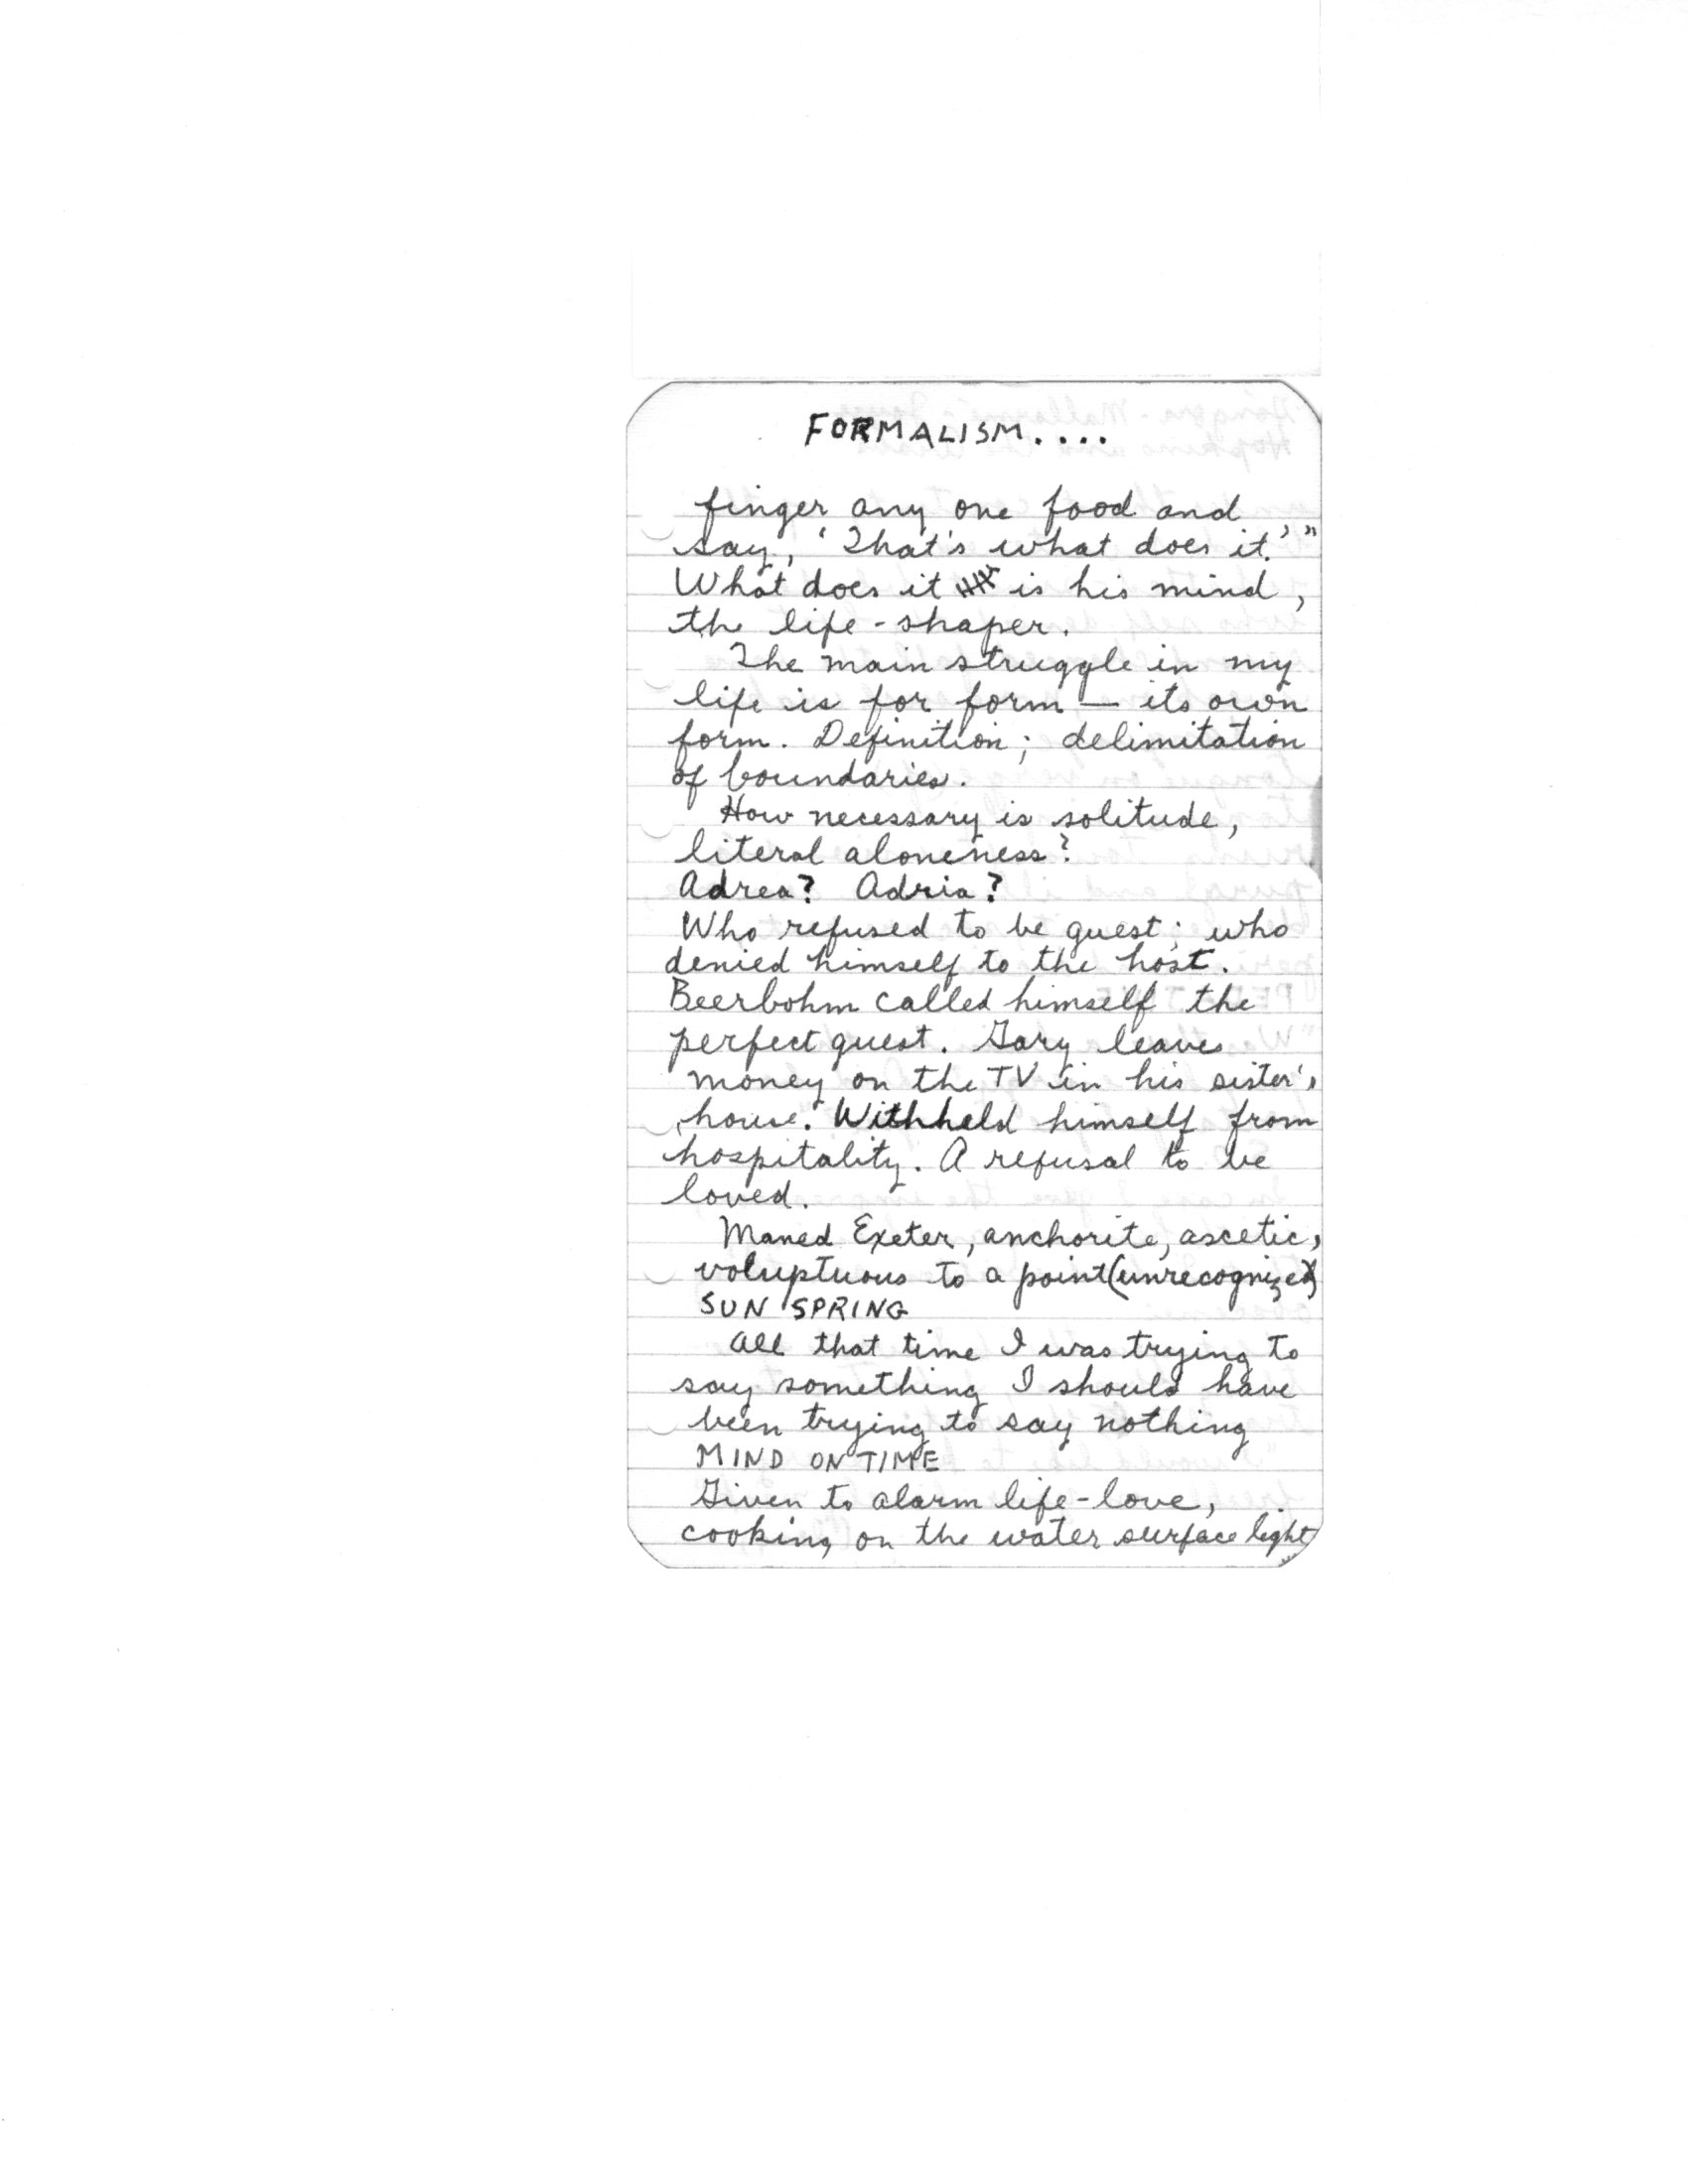 FORMALISM....
finger any one food and
say, 'That's what does it.'"
What does it is his mind,
the life-shaper.
The main struggle in my
life is for form — its own
form. Definition; delimitation
of boundaries.
How necessary is solitude,
literal aloneness?
Adrea? Adria?
Who refused to be guest; who
denied himself to the host.
Beerbohm called himself the
perfect guest. Gary leaves
money on the TV in his sister's
house. Withheld himself from
hospitality. A refusal to be
loved.
Maned Exeter, anchorite, ascetic,
voluptuous to a point (unrecognized)
SUN SPRING
All that time I was trying to
say something I should have
been trying to say nothing
MIND ON TIME
Given to alarm life-love,
cooking on the water surface light